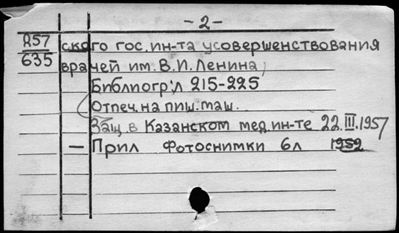 - 2 -
Д57 ского гос. ин-та усовершенствования
635 врачей им. В.И. Ленина,
Библиогр.л 215-225
Отпеч. на пиш. маш.
Защ. в Казанском мед. ин-те 22.III.1957
— Прил Фотоснимки 6л 1952